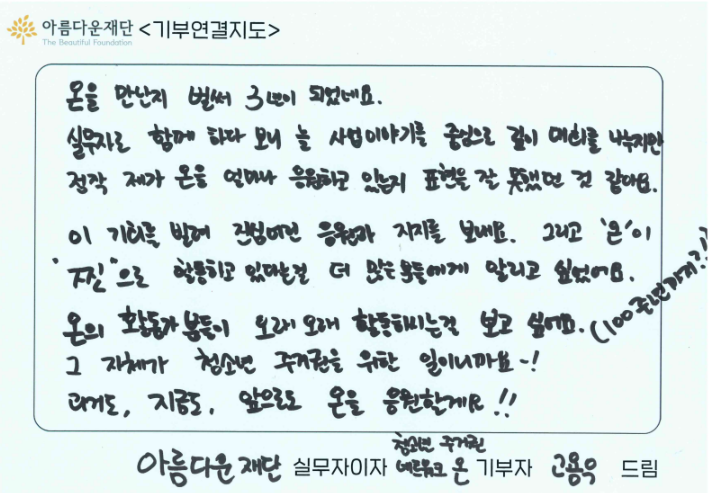 아름다운재단 <기부연결지도>
The Beautiful Foundation
온을 만난지 벌써 3년이 되었네요.
실무자로 함께 하다 보니 늘 사업이야기를 중심으로 깊이 대화를 나누지만
정작 제가 온을 얼마나 응원하고 있는지 표현을 잘 못했던 것 같아요.
이 기회를 빌려 진심어린 응원과 지지를 보내요. 그리고 '온'이
"찐"으로 활동하고 있다는걸 더 많은 분들에게 알리고 싶었어요.
온의 활동가 분들이 오래 오래 활동하시는걸 보고 싶어요. (100주년까지?!)
그 자체가 청소년 주거권을 위한 일이니까요~!
과거도, 지금도, 앞으로도 온을 응원할게요!!
아름다운재단 실무자이자 청소년 주거권 네트워크 온 기부자 고용우 드림